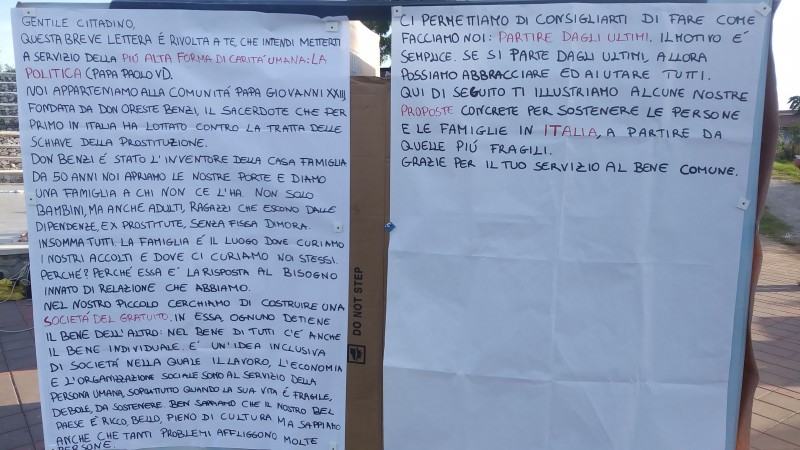 GENTILE CITTADINO,
QUESTA BREVE LETTERA É RIVOLTA A TE, CHE INTENDI METTERTI
A SERVIZIO DELLA PIÚ ALTA FORMA DI CARITÀ UMANA: LA
POLITICA (PAPA PAOLO VI).
NOI APPARTENIAMO ALLA COMUNITÀ PAPA GIOVANNI XXIII
FONDATA DA DON ORESTE BENZI, IL SACERDOTE CHE PER
PRIMO IN ITALIA HA LOTTATO CONTRO LA TRATTA DELLE
SCHIAVE DELLA PROSTITUZIONE.
DON BENZI É STATO L'INVENTORE DELLA CASA FAMIGLIA
DA 50 ANNI NOI APRIAMO LE NOSTRE PORTE E DIAMO
UNA FAMIGLIA A CHI NON CE L'HA. NON SOLO
BAMBINI, MA ANCHE ADULTI, RAGAZZI CHE ESCONO DALLE
DIPENDENZE, EX PROSTITUTE, SENZA FISSA DIMORA.
INSOMMA TUTTI. LA FAMIGLIA É IL LUOGO DOVE CURIAMO
I NOSTRI ACCOLTI E DOVE CI CURIAMO NOI STESSI.
PERCHÉ? PERCHÉ ESSA E' LA RISPOSTA AL BISOGNO
INNATO DI RELAZIONE CHE ABBIAMO.
NEL NOSTRO PICCOLO CERCHIAMO DI COSTRUIRE UNA
SOCIETÀ DEL GRATUITO. IN ESSA, OGNUNO DETIENE
IL BENE DELL'ALTRO: NEL BENE DI TUTTI C'É ANCHE
IL BENE INDIVIDUALE. É UN'IDEA INCLUSIVA
DI SOCIETÀ NELLA QUALE IL LAVORO, L'ECONOMIA
E L'ORGANIZZAZIONE SOCIALE SONO AL SERVIZIO DELLA
PERSONA UMANA, SOPRATTUTTO QUANDO LA SUA VITA É FRAGILE,
DEBOLE, DA SOSTENERE. BEN SAPPIAMO CHE IL NOSTRO BEL
PAESE É RICCO, BELLO, PIENO DI CULTURA MA SAPPIAMO
ANCHE CHE TANTI PROBLEMI AFFLIGGONO MOLTE
PERSONE.
DO NOT STEP
CI PERMETTIAMO DI CONSIGLIARTI DI FARE COME
FACCIAMO NOI: PARTIRE DAGLI ULTIMI. IL MOTIVO E'
SEMPLICE. SE SI PARTE DAGLI ULTIMI, ALLORA
POSSIAMO ABBRACCIARE ED AIUTARE TUTTI.
QUI DI SEGUITO TI ILLUSTRIAMO ALCUNE NOSTRE
PROPOSTE CONCRETE PER SOSTENERE LE PERSONE
E LE FAMIGLIE IN ITALIA, A PARTIRE DA
QUELLE PIÚ FRAGILI.
GRAZIE PER IL TUO SERVIZIO AL BENE COMUNE.